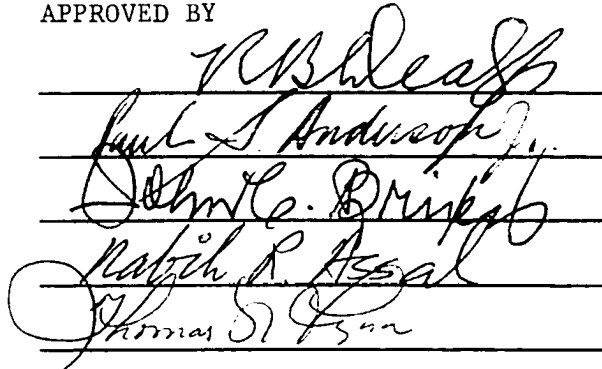 APPROVED BY
R B Deal
Paul S. Anderson Jr.
John C. Brixey
Nabih R. Assal
Thomas